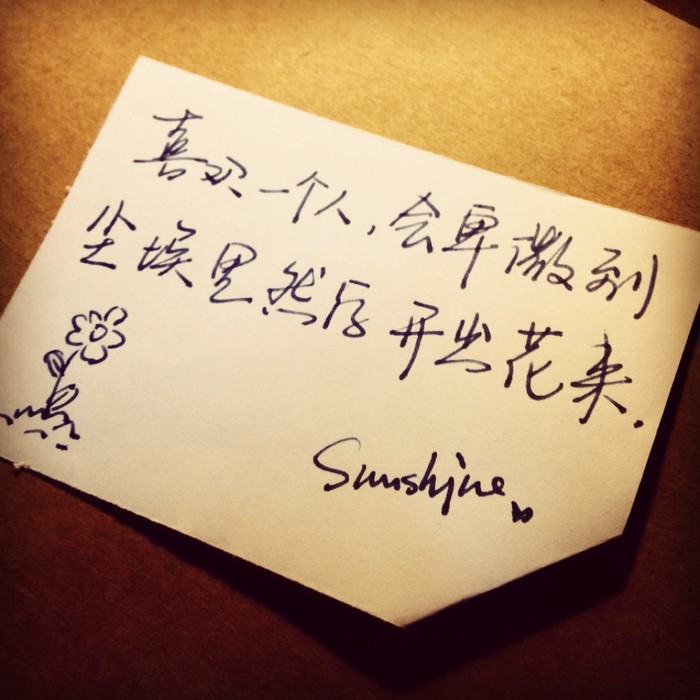 喜欢一个人,会卑微到
尘埃里然后开出花来.
Sunshine